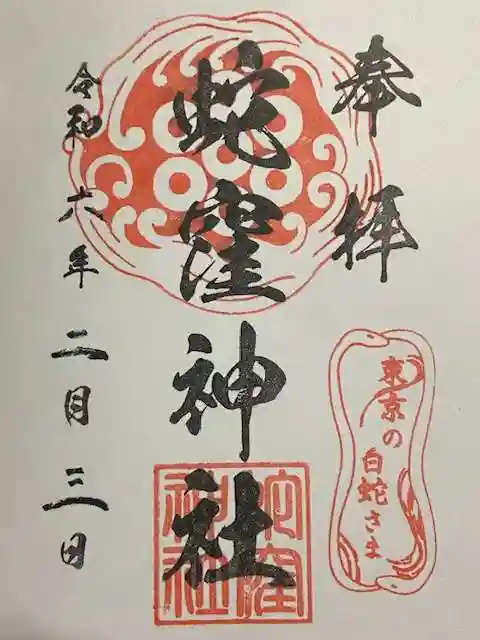 奉拝
蛇窪神社
令和六年二月三日
東京の
白蛇さま
蛇窪
神社